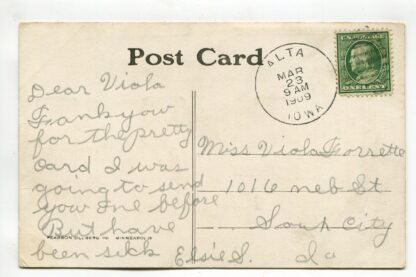 Post Card
ALTA
MAR
23
9 AM
1909
IOWA
U.S. POSTAGE
ONE CENT
Dear Viola
Thank you
for the pretty
Card I was
going to send
you one before
But have
been sick
Elsie S.
Miss Viola Forrette
1016 neb St
Soux City
Ia
MINNEAPOLIS